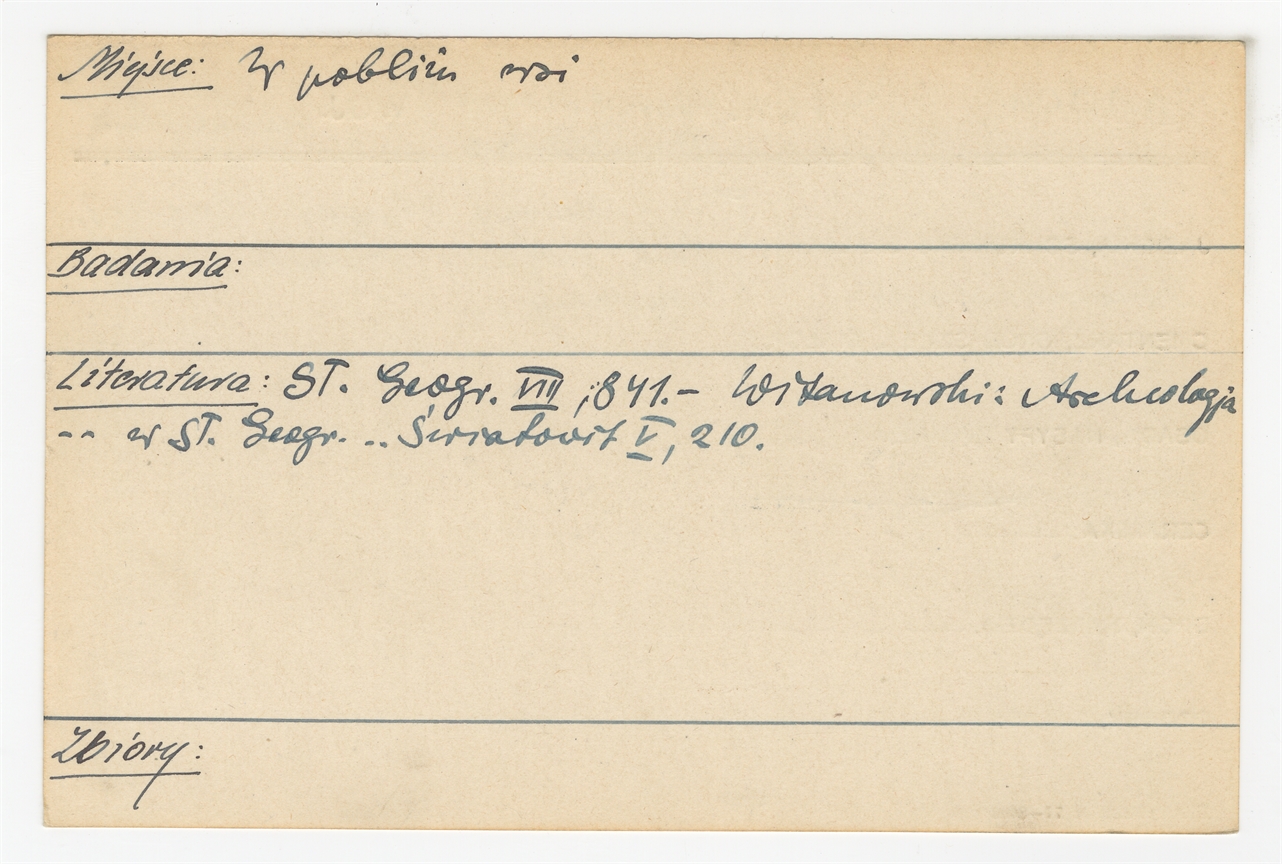 Miejsce: W pobliżu wsi
Badania:
Literatura: Sł. Geogr. VIII, 841.- Witanowski: Archeologja
-- w Sł. Geogr. .. Światowit V, 210.
Zbiory: